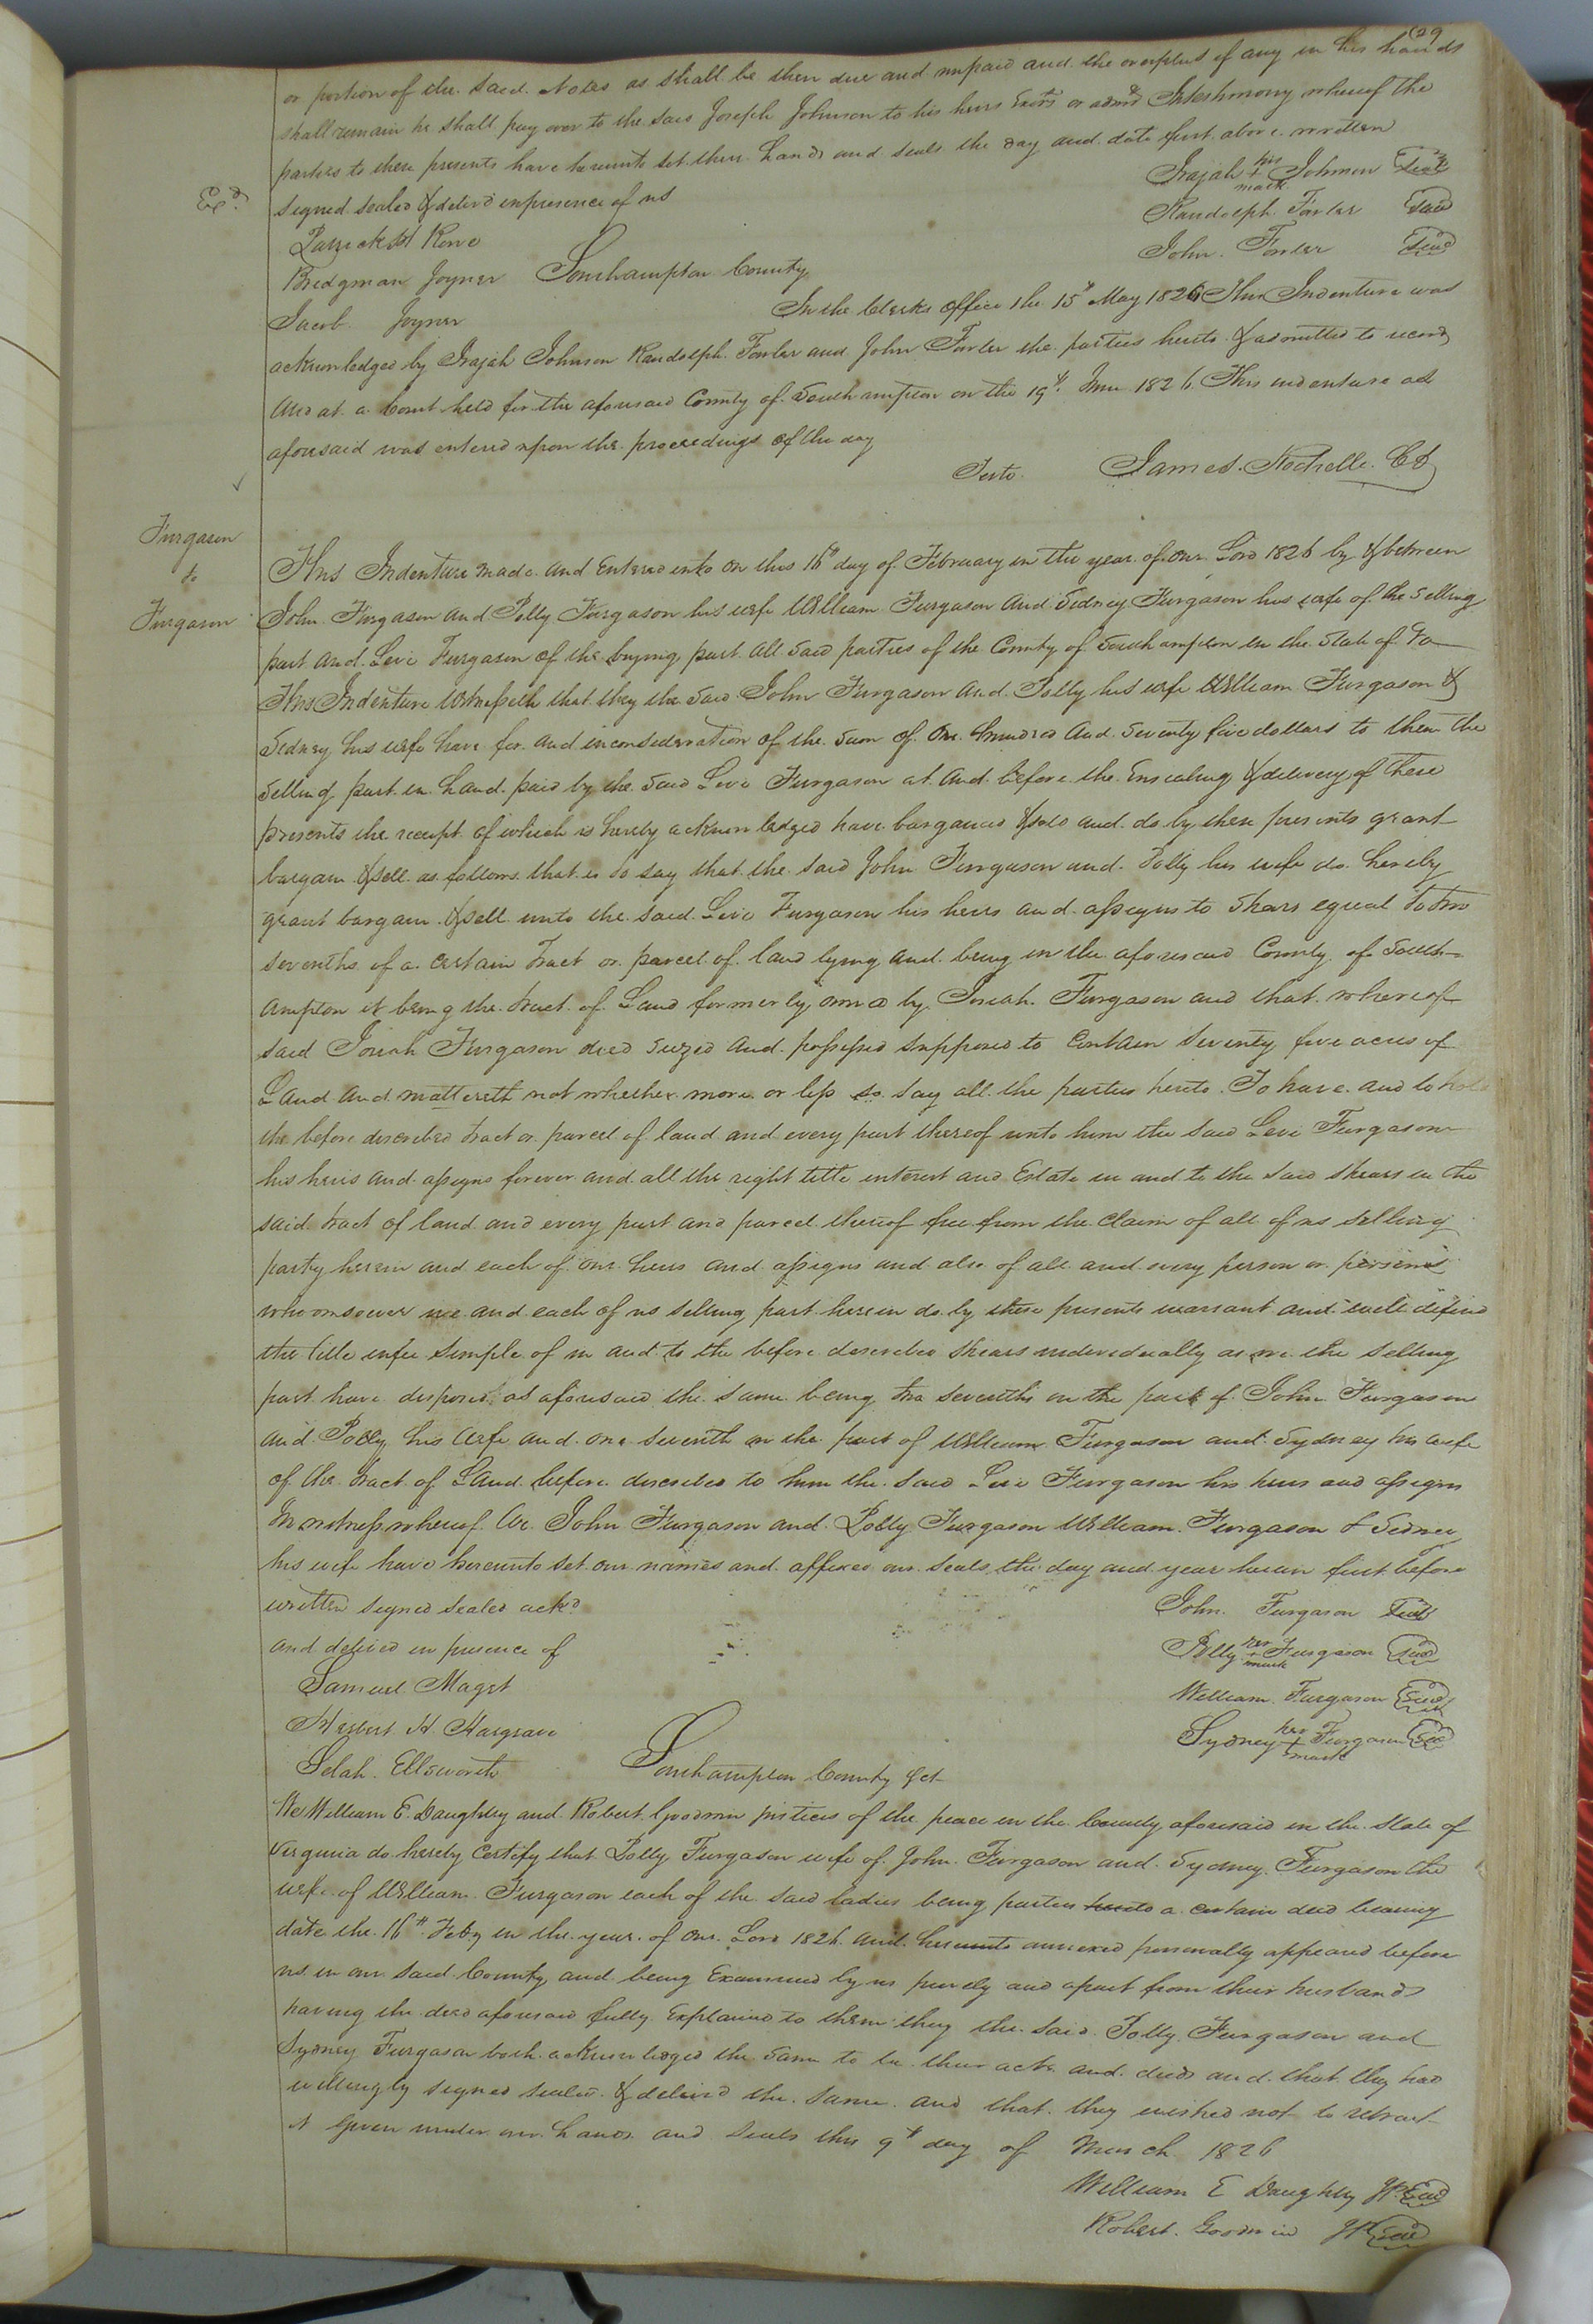 129
or portion of the said Notes as shall be then due and unpaid and the overplus if any in his hands
shall remain he shall pay over to the said Joseph Johnson to his heirs Exors or admrs In testimony whereof the
parties to these presents have hereunto set their hands and seals the day and date first above written
Exd.
signed sealed & delivd in presence of us
Irajah his + mark Johnson Seal
Randolph Fowler Seal
Rowe
John Fowler Seal
Bridgman Joyner Southampton County
Jacob Joyner
In the Clerks office the 15th May 1826 This Indenture was
acknowledged by Irajah Johnson Randolph Fowler and John Fowler the parties hereto & admitted to record
And at a Court held for the aforesaid County of Southampton on the 19th June 1826 This indenture as
aforesaid was entered upon the proceedings of the day
Teste James Rochelle CC
Furgason
to
Furgason
This Indenture made and Entered into on this 16th day of February in the year of our Lord 1826 by & between
John Furgason and Polly Furgason his wife William Furgason and Sidney Furgason his wife of the selling
part and Levi Furgason of the buying part all said parties of the County of Southampton in the State of Va
This Indenture Witnesseth that they the said John Furgason and Polly his wife William Furgason &
Sidney his wife have for and in consideration of the sum of One hundred and seventy five dollars to them the
selling part in hand paid by the said Levi Furgason at and before the Ensealing & delivery of these
presents the receipt of which is hereby acknowledged have bargained & sold and do by these presents grant
bargain & sell as follows that is to say that the said John Furgason and Polly his wife do hereby
grant bargain & sell unto the said Levi Furgason his heirs and assigns to Shears equal to two
sevenths of a certain tract or parcel of land lying and being in the aforesaid County of South-
ampton it being the tract of Land formerly owned by Josiah Furgason and that whereof
said Josiah Furgason died seized and possessed supposed to contain seventy five acres of
Land and mattereth not whether more or less so say all the parties hereto To have and to hold
the before described tract or parcel of land and every part thereof unto him the said Levi Furgason
his heirs and assigns forever and all the right title interest and Estate in and to the said shears in the
said tract of land and every part and parcel thereof free from the claim of all of us selling
party herein and each of our heirs and assigns and also of all and every person or persons
whomsoever we and each of us selling part herein do by these presents warrant and will defend
the title in fee simple of in and to the before described shears individually as we the selling
part have disposed as aforesaid the same being two sevenths on the part of John Furgason
and Polly his wife and one seventh on the part of William Furgason and Sydney his wife
of the tract of Land before described to him the said Levi Furgason his heirs and assigns
In witness whereof We John Furgason and Polly Furgason William Furgason & Sidney
his wife have hereunto set our names and affixed our seals the day and year herein first before
written signed sealed ackd
and delived in presence of
John Furgason Seal
Polly her + mark Furgason Seal
Samuel Maget
William Furgason Seal
Herbert H. Hargrave
Sydney her + mark Furgason Seal
Selah Ellsworth Southampton County Sct
We William E. Daughtry and Robert Goodwin justices of the peace in the County aforesaid in the State of
Virginia do hereby certify that Polly Furgason wife of John Furgason and Sydney Furgason the
wife of William Furgason each of the said ladies being parties hereto a certain deed bearing
date the 16th Feby in the year of our Lord 1826 and hereunto annexed personally appeared before
us in our said County and being Examined by us privily and apart from their husbands
having the deed aforesaid fully Explained to them they the said Polly Furgason and
Sydney Furgason both acknowledged the same to be their acts and deeds and that they had
willingly signed sealed & delived the same and that they wished not to retract
it Given under our hands and seals this 9th day of March 1826
William E Daughtry JP Seal
Robert Goodwin JP Seal